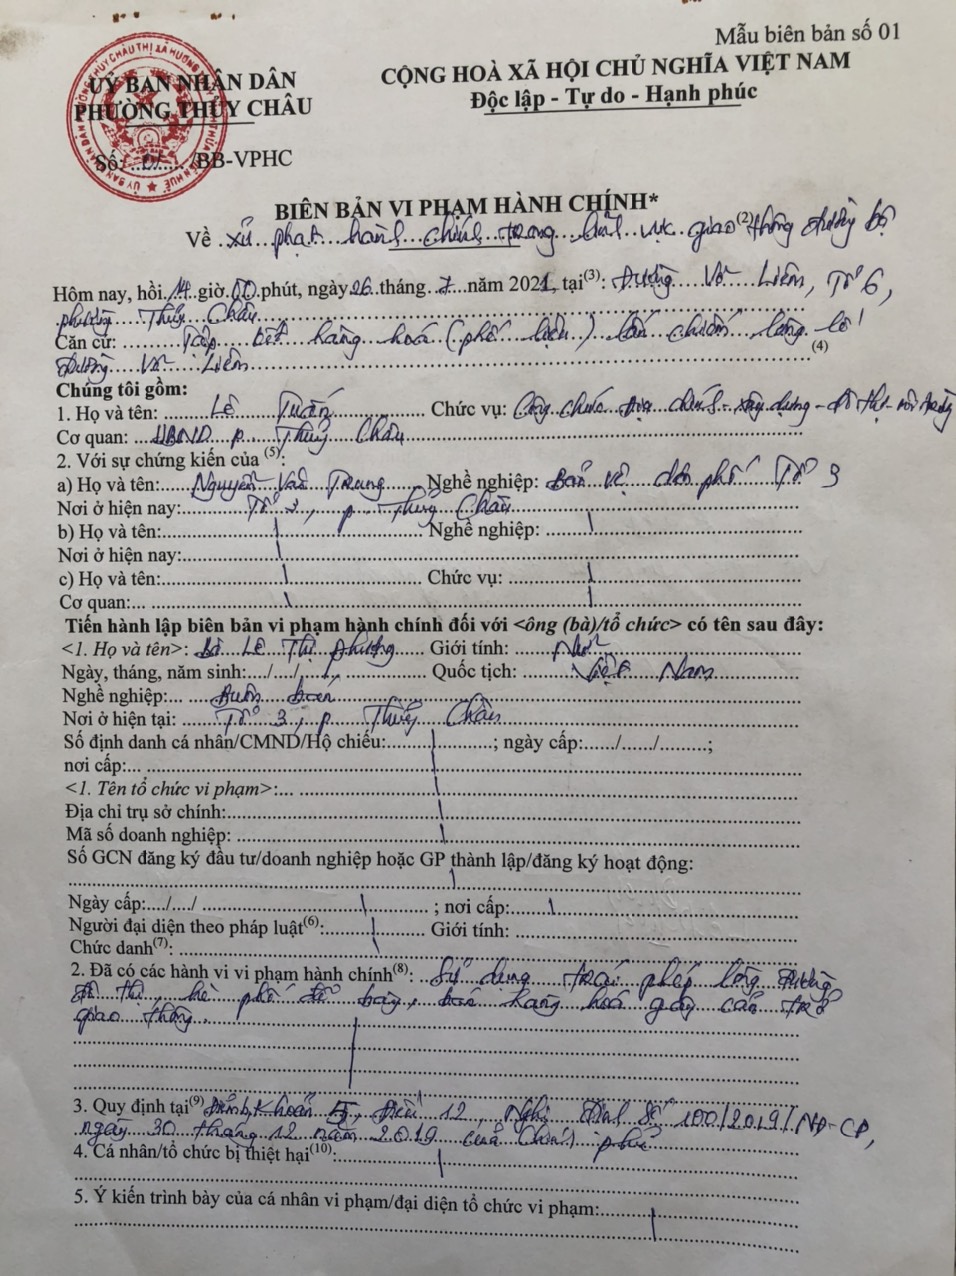 Mẫu biên bản số 01
UỶ BAN NHÂN DÂN
PHƯỜNG THỦY CHÂU
CỘNG HOÀ XÃ HỘI CHỦ NGHĨA VIỆT NAM
Độc lập - Tự do - Hạnh phúc
Số: ....../BB-VPHC
BIÊN BẢN VI PHẠM HÀNH CHÍNH*
Về xử phạt hành chính trong lĩnh vực giao (2) thông đường bộ
Hôm nay, hồi 14 giờ 00 phút, ngày 26 tháng 7 năm 2021, tại(3): Đường Võ Liêm, Tổ 6,
phường Thủy Châu
Căn cứ: Tập kết hàng hoá (phế liệu) lấn chiếm lòng lề
đường Võ Liêm (4)
Chúng tôi gồm:
1. Họ và tên: Lê Tuấn Chức vụ: Công chức địa chính - xây dựng - đô thị - môi trường
Cơ quan: UBND p. Thủy Châu
2. Với sự chứng kiến của (5):
a) Họ và tên: Nguyễn Văn Trung Nghề nghiệp: Bảo vệ dân phố Tổ 3
Nơi ở hiện nay: Tổ 3, p. Thủy Châu
b) Họ và tên: Nghề nghiệp:
Nơi ở hiện nay:
c) Họ và tên: Chức vụ:
Cơ quan:
Tiến hành lập biên bản vi phạm hành chính đối với <ông (bà)/tổ chức> có tên sau đây:
<1. Họ và tên>: Bà Lê Thị Phượng Giới tính: Nữ
Ngày, tháng, năm sinh:..../..../.... Quốc tịch: Việt Nam
Nghề nghiệp: Buôn bán
Nơi ở hiện tại: Tổ 3, p. Thủy Châu
Số định danh cá nhân/CMND/Hộ chiếu:..........; ngày cấp:....../....../........;
nơi cấp:...
<1. Tên tổ chức vi phạm>:...
Địa chỉ trụ sở chính:
Mã số doanh nghiệp:
Số GCN đăng ký đầu tư/doanh nghiệp hoặc GP thành lập/đăng ký hoạt động:
Ngày cấp:..../..../ ; nơi cấp:
Người đại diện theo pháp luật(6): Giới tính:
Chức danh(7):
2. Đã có các hành vi vi phạm hành chính(8): Sử dụng trái phép lòng đường
đô thị, hè phố để bày, bán hàng hoá gây cản trở
giao thông.
3. Quy định tại(9) Điểm b, Khoản 5, Điều 12, Nghị định số 100/2019/NĐ-CP,
ngày 30 tháng 12 năm 2019 của Chính phủ
4. Cá nhân/tổ chức bị thiệt hại(10):
5. Ý kiến trình bày của cá nhân vi phạm/đại diện tổ chức vi phạm: